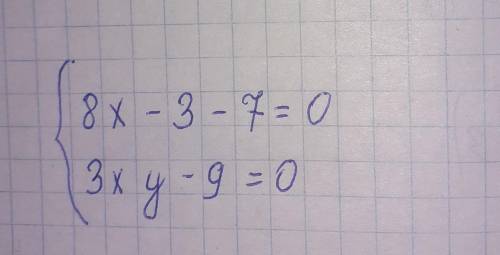 8x - 3 - 7 = 0
3x y - 9 = 0